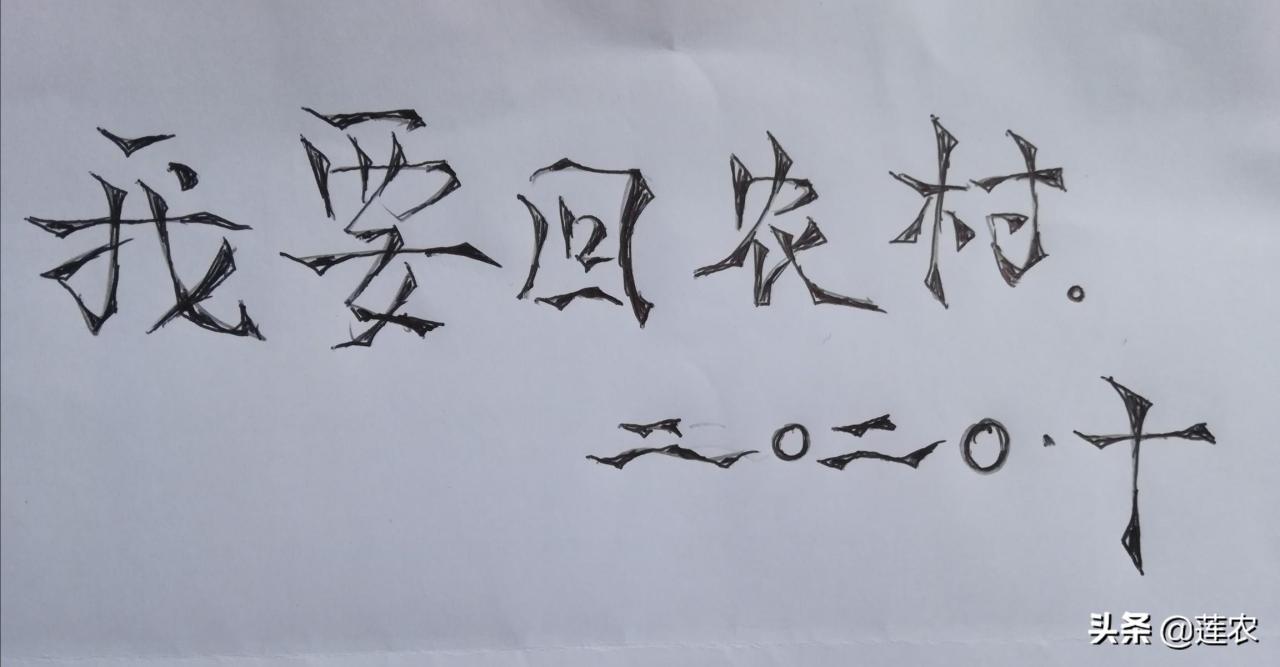 我要回农村。
二〇二〇·十
头条 @莲农